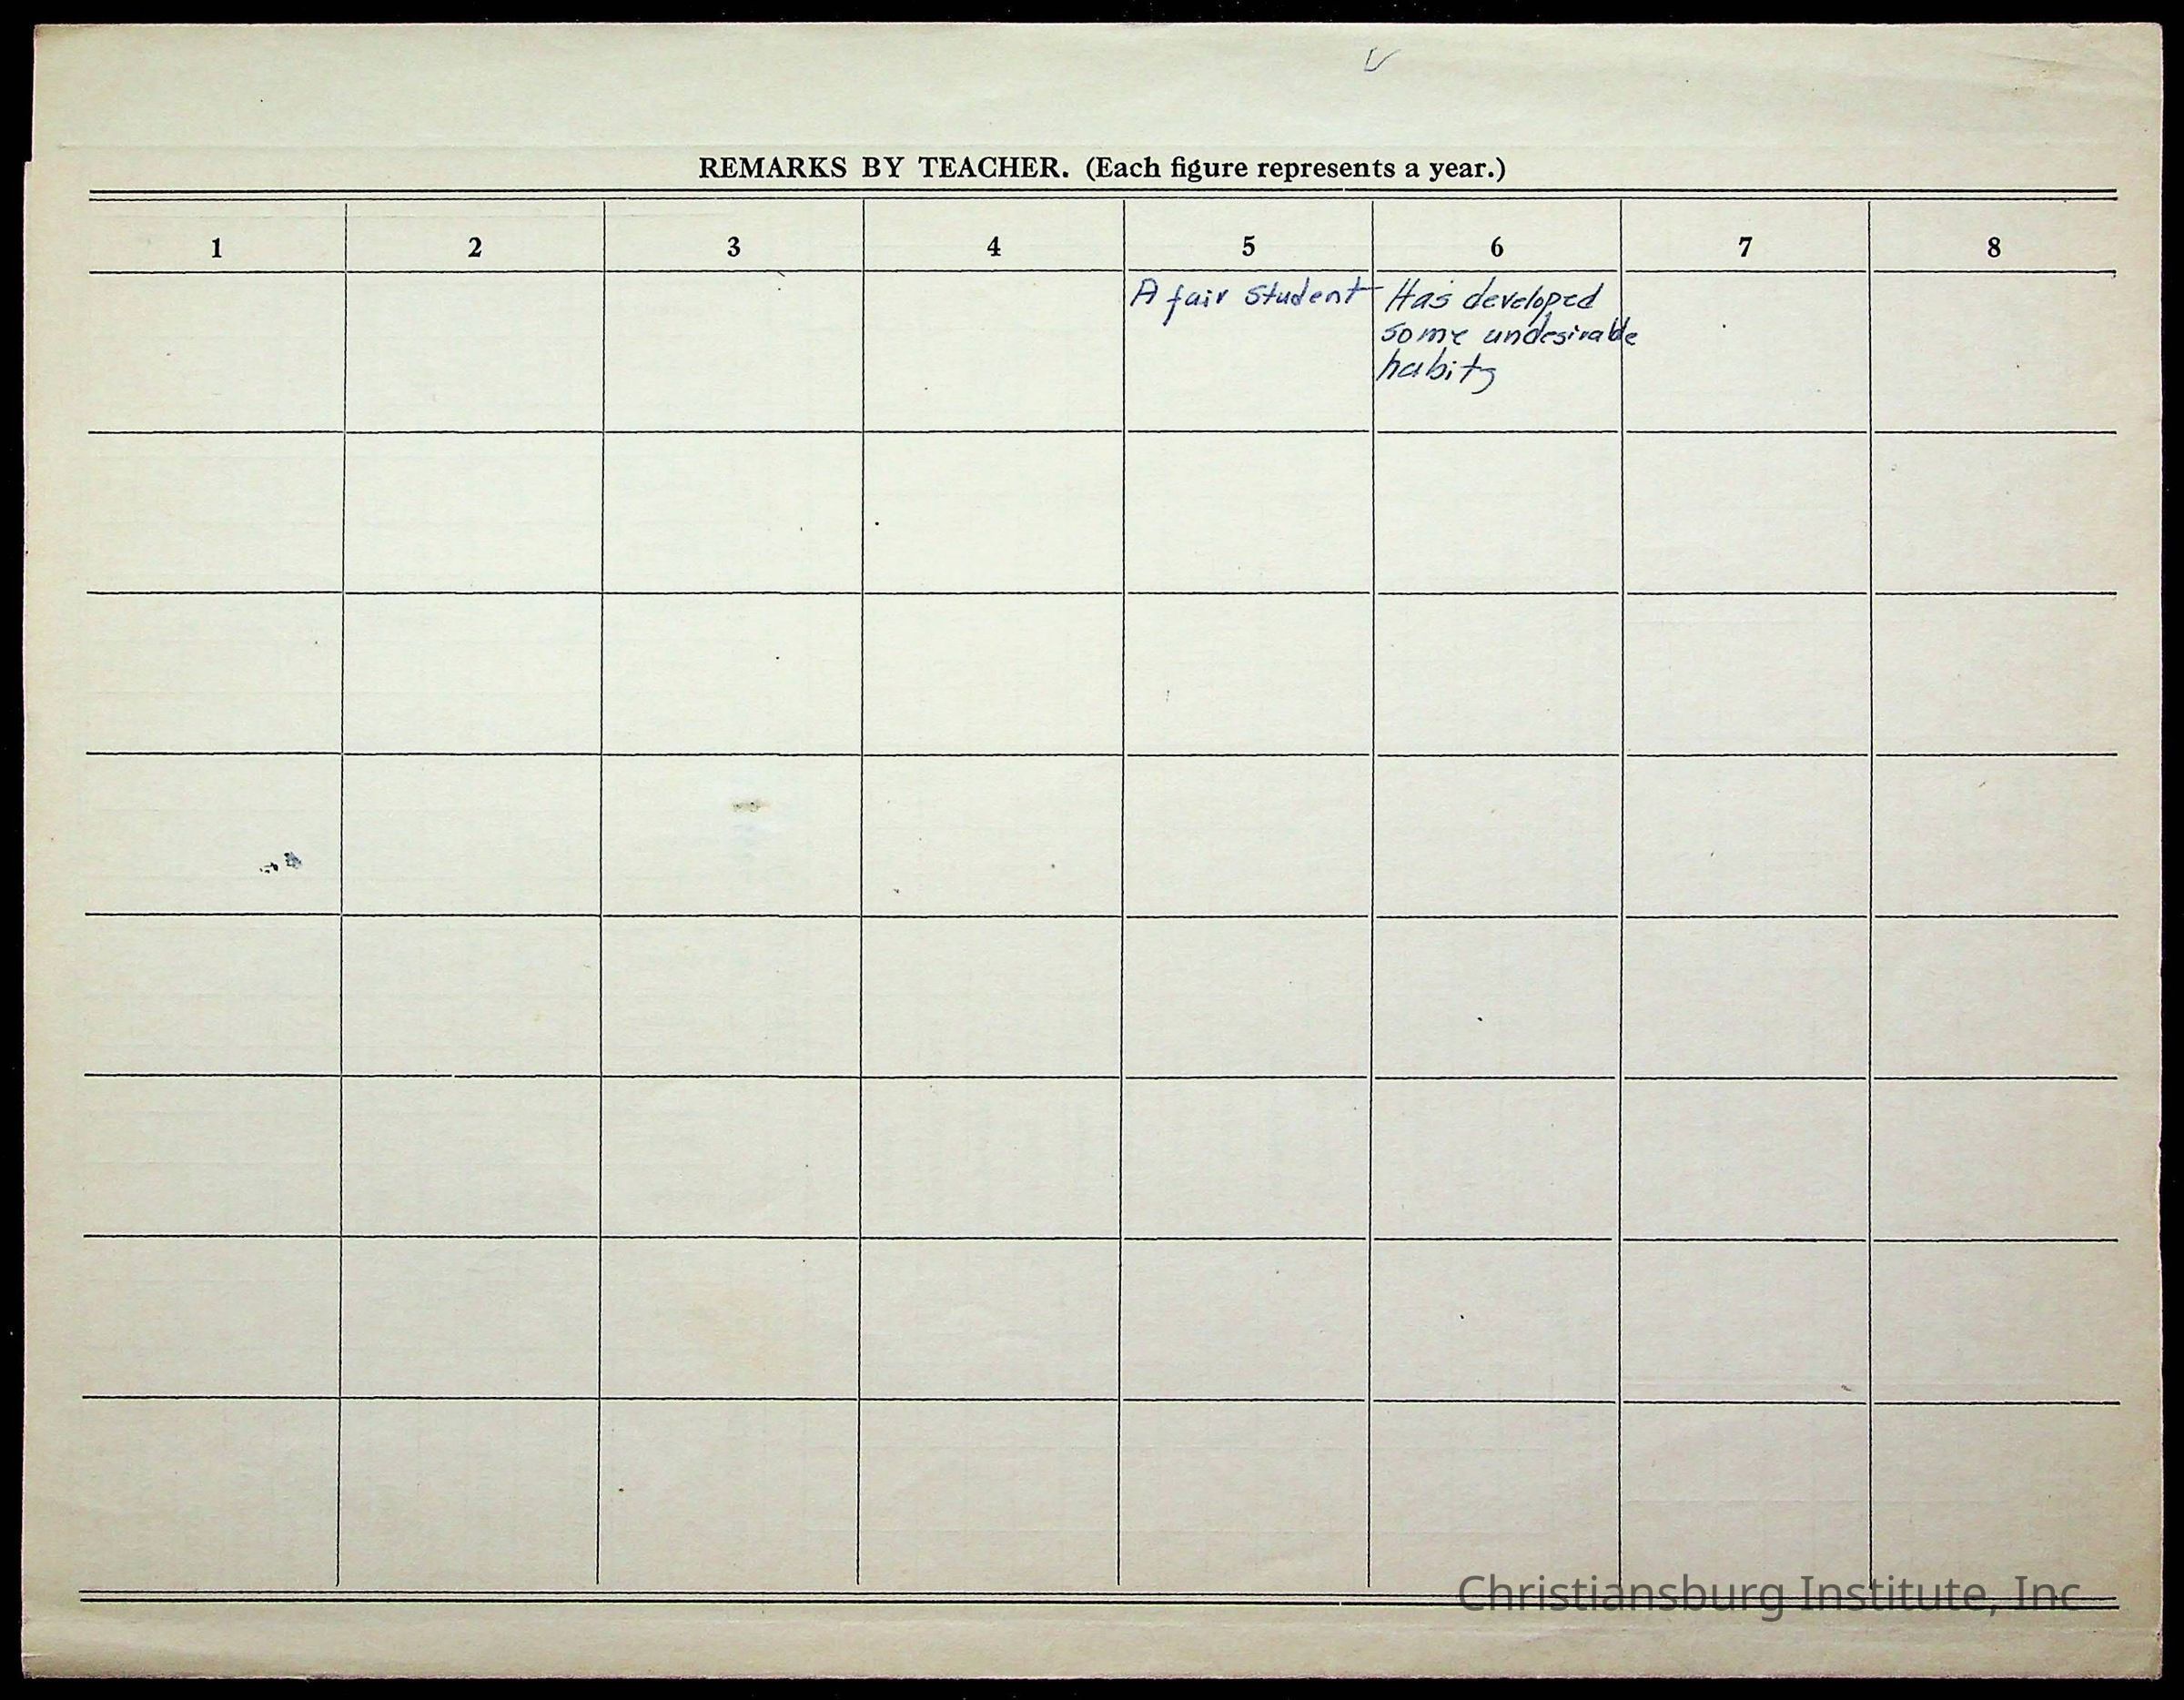 REMARKS BY TEACHER. (Each figure represents a year.)
1 2 3 4 5 6 7 8
A fair student
Has developed
some undesirable
habits
Christiansburg Institute, Inc